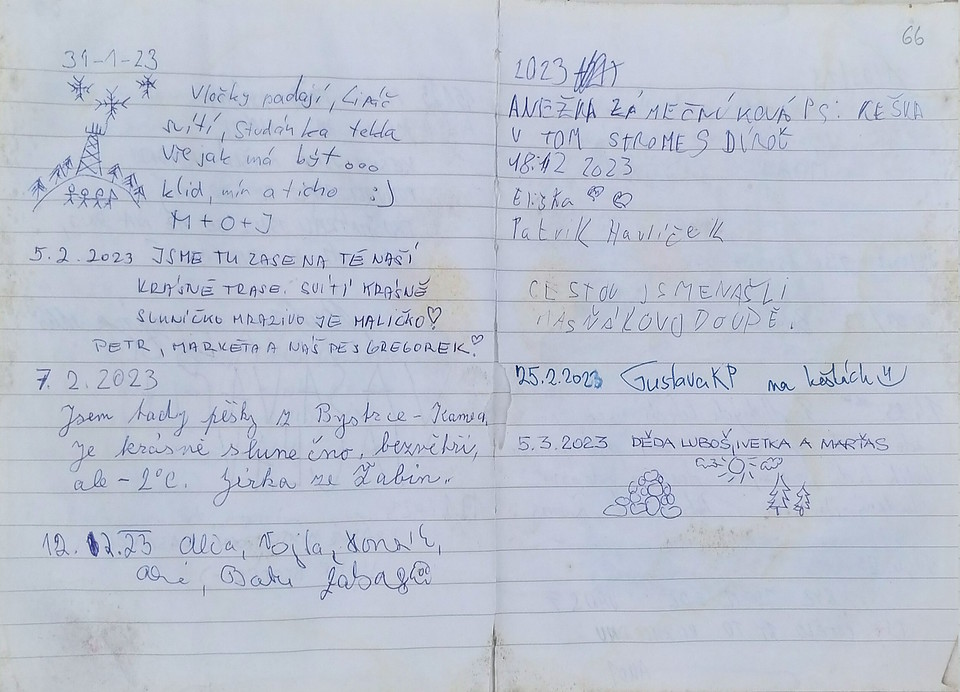 31-1-23
Vločky padají, Lipič
svítí, studánka tekla
vše jak má být...
klid, mír a ticho :)
M + O + J
5.2.2023 JSME TU ZASE NA TÉ NAŠÍ
KRÁSNÉ TRASE. SVÍTÍ KRÁSNĚ
SLUNÍČKO MRAZIVO JE MALIČKO♡
PETR, MARKÉTA A NÁŠ PES GREGOREK.♡
7. 2. 2023
Jsem tady pěšky z Bystrce - Kamea,
je krásně slunečno, bezvětří,
ale -2°C. Jirka ze Žabin..
12. 2. 23 Vojta, Honzík,
66
2023
ANEŽKA ZÁMEČNÍKOVÁ PS: KEŠKA
V TOM STROME S DÍROU
18:12 2023
Eliška ♡ ♡
Patrik Havlíček
CESTOU JSME NAŠLI
MASŇÁKOVO DOUPĚ.
25.2.2023 GustavaKP na keškách
5.3.2023 DĚDA LUBOŠ, IVETKA A MAŤAS